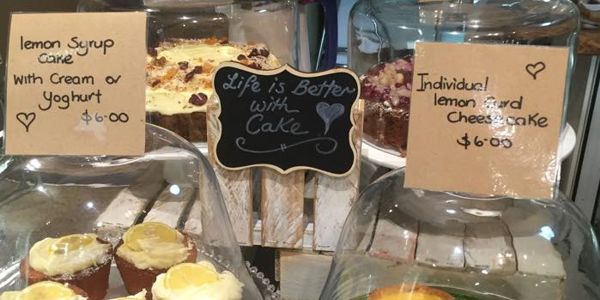 lemon Syrup
Cake
With Cream or
Yoghurt
$6.00
Life is Better
with
Cake
Individual
lemon Curd
Cheesecake
$6.00